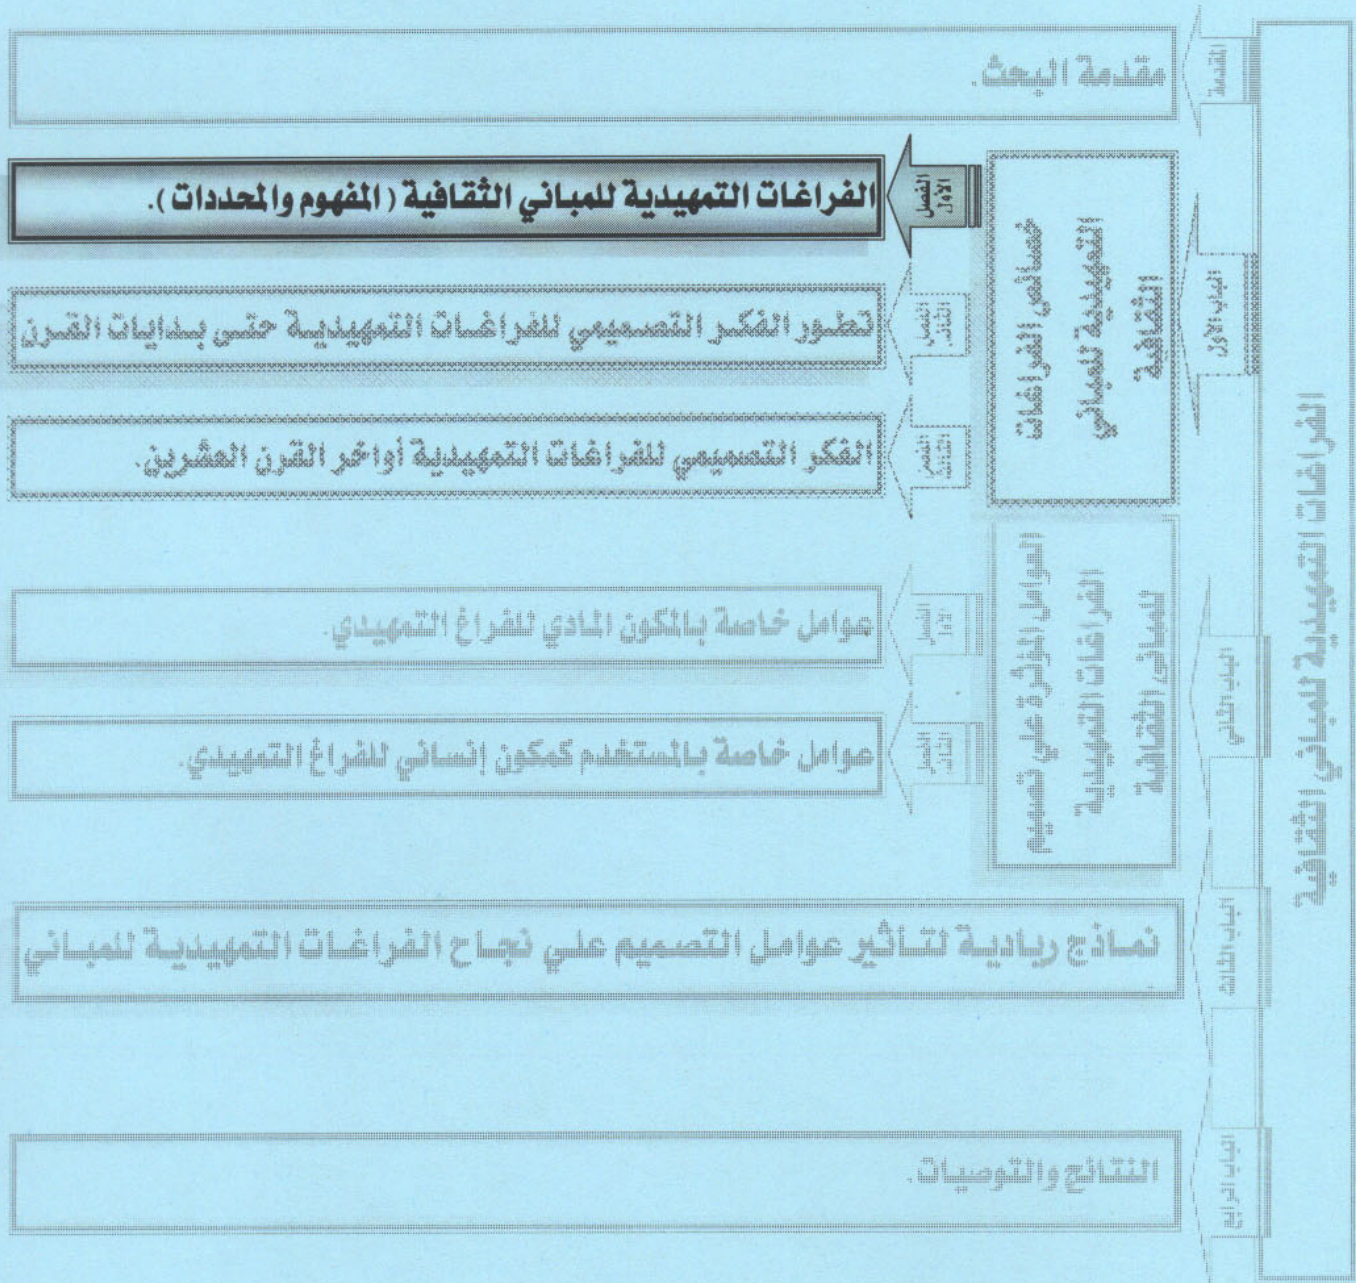 الفراغات التمهيدية للمباني الثقافية
المقدمة
مقدمة البحث.
الباب الأول
خصائص الفراغات
التمهيدية للمباني
الثقافية
الفصل
الأول
الفراغات التمهيدية للمباني الثقافية ( المفهوم والمحددات ).
الفصل
الثاني
تطور الفكر التصميمي للفراغات التمهيدية حتى بدايات القرن
الفصل
الثالث
الفكر التصميمي للفراغات التمهيدية أواخر القرن العشرين.
الباب الثاني
العوامل المؤثرة علي تصميم
الفراغات التمهيدية
للمباني الثقافية
الفصل
الأول
عوامل خاصة بالمكون المادي للفراغ التمهيدي.
الفصل
الثاني
عوامل خاصة بالمستخدم كمكون إنساني للفراغ التمهيدي.
الباب الثالث
نماذج ريادية لتأثير عوامل التصميم علي نجاح الفراغات التمهيدية للمباني
الباب الرابع
النتائج والتوصيات.